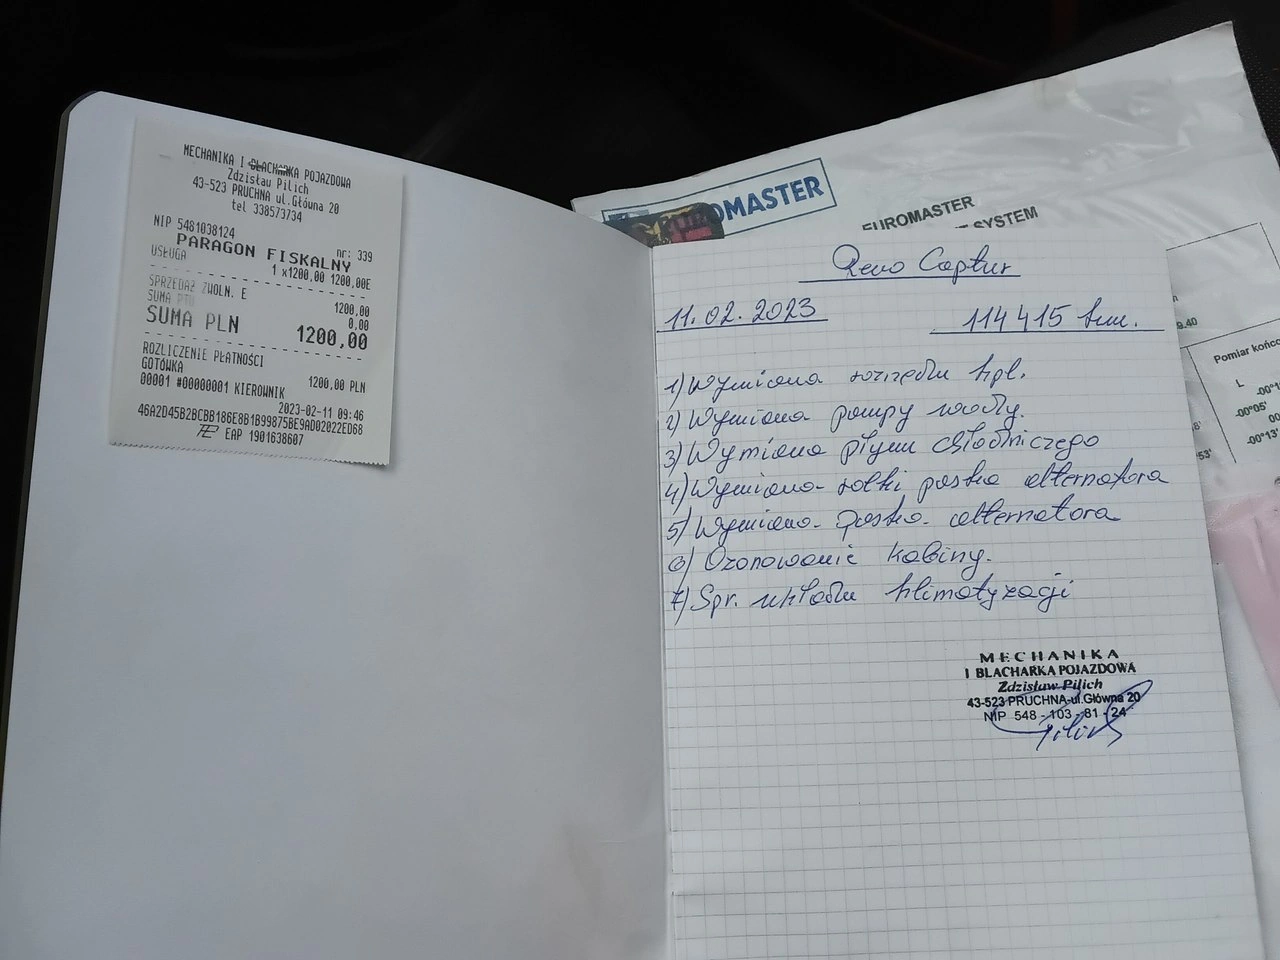 MECHANIKA I BLACHARKA POJAZDOWA
Zdzisław Pilich
43-523 PRUCHNA ul.Główna 20
tel 338573734
NIP 5481038124
nr: 339
PARAGON FISKALNY
USŁUGA
1 x1200,00 1200,00E
SPRZEDAŻ ZWOLN. E 1200,00
SUMA PTU 0.00
SUMA PLN 1200,00
ROZLICZENIE PŁATNOŚCI
GOTÓWKA 1200,00 PLN
00001 #00000001 KIEROWNIK
2023-02-11 09:46
46A2D45B2BCBB186E8B1B99875BE9AD02022ED68
EAP 1901638607
EUROMASTER
SYSTEM
Pomiar końco
L
-00°05'
-00°13'
Reno Captur
11.02.2023 114 415 km.
1) Wymiana rozrządu kpl.
2) Wymiana pompy wody.
3) Wymiana płynu chłodniczego
4) Wymiana rolki paska alternatora
5) Wymiana paska alternatora
6) Ozonowanie kabiny.
7) Spr. układu klimatyzacji
MECHANIKA
I BLACHARKA POJAZDOWA
Zdzisław Pilich
43-523 PRUCHNA-ul.Główna 20
NIP 548-103-81-24